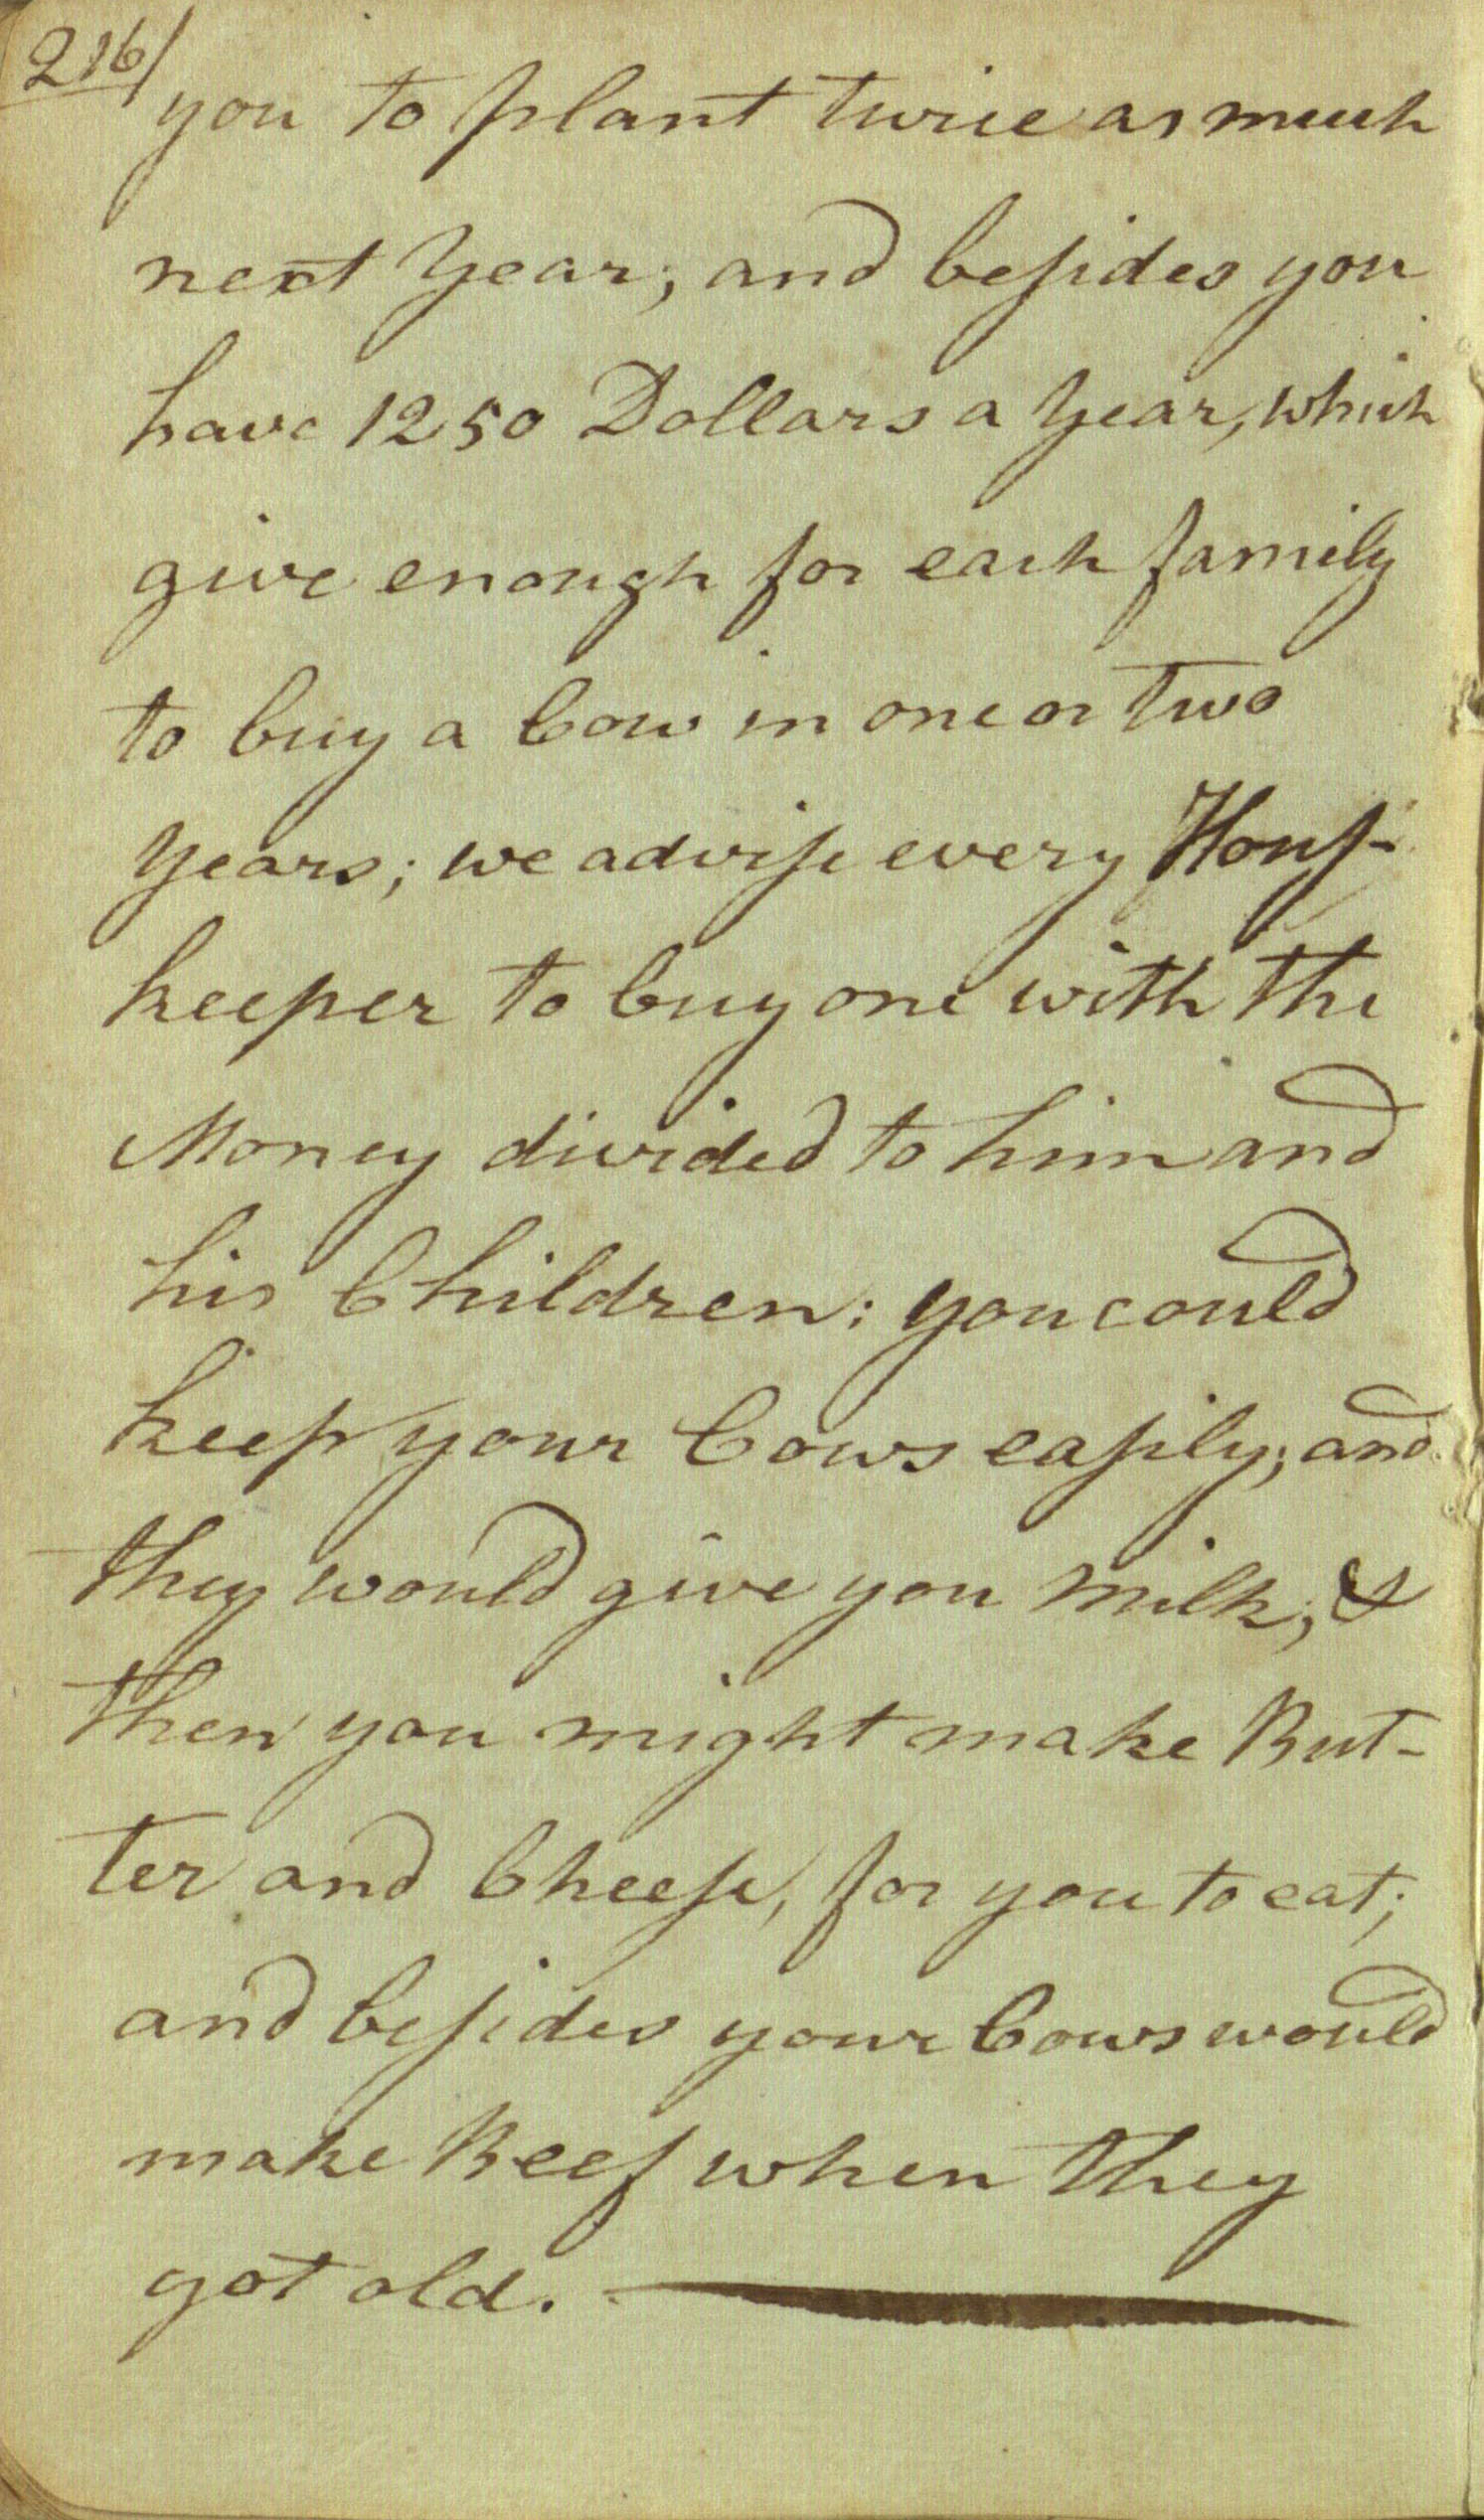 216/
you to plant twice as much
next Year; and besides you
have 1250 Dollars a Year, which
give enough for each family
to buy a Cow in one or two
Years; we advise every House-
keeper to buy one with the
Money divided to him and
his Children: you could
keep your Cows easily; and
they would give you Milk; &
then you might make But-
ter and Cheese, for you to eat;
and besides your Cows would
make Beef when they
got old.